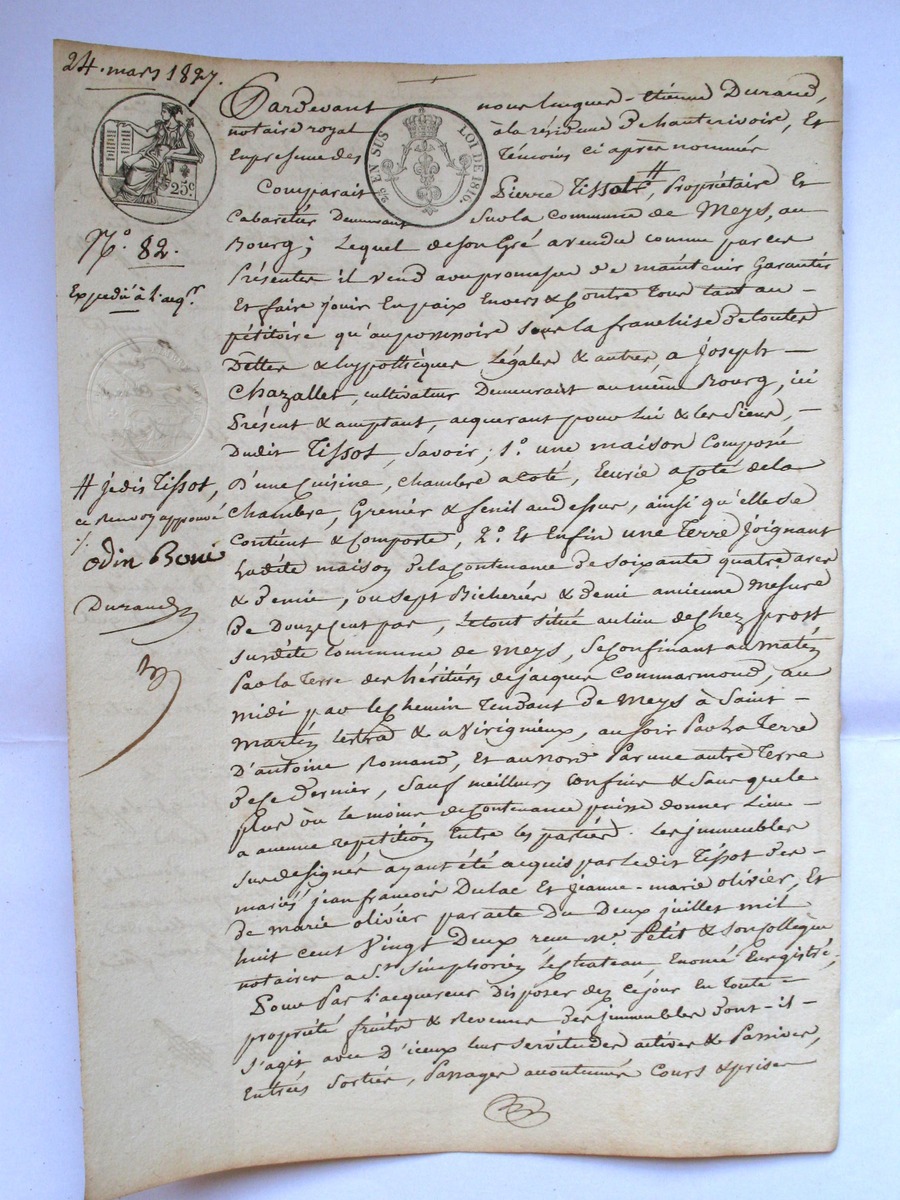 24. mars 1827.
25c
25c EN SUS
LOI DE 1816.
N.o 82.
Expédié à l'acqr.
# je dis Tissot,
ce renvoy approuvé
./.
odin Bonie
Durand
Pardevant nous Etienne Durand,
notaire royal à la résidence de hauterivoire, Et
En presence des Témoins ci après nommés
Comparait Pierre Tissot #, Propriétaire Et
Cabaretier Demeurant Sur la commune de Meys, au
Bourg; Lequel de son Gré a vendu comme par ces
Présentes il vend avec promesse de maintenir Garantir
Et faire jouir En paix Envers & Contre Tous tant au
pétitoire qu'au possessoire sous la franchise de toutes
Dettes & hypothèques Légales & autres, a Joseph
Chazallet, cultivateur Demeurant au même Bourg, ici
Présent & acceptant, acquerant pour Lui & les Siens,
Dudit Tissot, Savoir; 1.o une maison Composée
D'une Cuisine, chambre a coté, Ecurie a coté de la
chambre, Grenier & fenil au dessus, ainsi qu'elle se
Contient & Comporte, 2.o Et Enfin une Terre Joignant
Ladite maison de la contenance de soixante quatre ares
& demie, ou sept Bicherées & demie ancienne mesure
De Douze Cent pas, Le tout situé au lieu de Chez prost
susdite Commune de Meys, Se Confinant au matin
Par la Terre des héritiers de jacques Commarmond, au
midi par le Chemin Tendant de Meys à Saint
Martin lestrat & a Virigneux, au soir Par La Terre
D'antoine Romand, Et au nord Par une autre Terre
De Ce Dernier, Sauf meilleurs Confins & Sans que le
plus où le moins de Contenance puisse donner Lieu
a aucune repetition Entre les parties. Les jmmeubles
Susdesignés ayant été acquis par le dit Tissot des
mariés jean francois Dulac Et jeanne-marie olivier, Et
de marie olivier par acte Du Deux juillet mil
huit cent Vingt Deux reçu Me. Petit & son Collègue
notaires a St. Simphorien Le Chateau, Enoncé Enregistré,
Pour Par L'acquereur Disposer dez ce jour En Toute
propriété fruits & Revenus Des jmmeubles Dont-il
s'agit, avec d'iceux leurs servitudes actives & Passives,
Entrées Sorties, Passages accoutumés Cours & prises